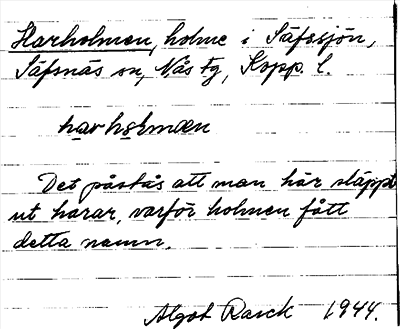 Harholmen, holme i Säfssjön,
Säfsnäs sn, Nås tg, Kopp. l.
harholmæn
Det påstås att man här släppt
ut harar, varför holmen fått
detta namn.
Algot Rasck 1944.